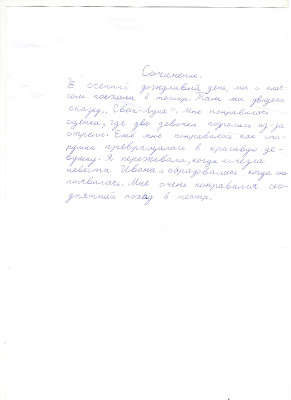 Сочинение.
В осенний дождливый день, мы с клас-
сом поехали в театр. Там мы увидели
сказку, Мне понравилась
сценка, где две девочки подрались из-за
Ещё мне понравилось как ста-
рушка превращалась в красивую де-
вушку. Я переживала, когда исчезла
невеста Ивана и обрадовалась когда она
появилась. Мне очень понравился сего-
дняшний поход в театр.